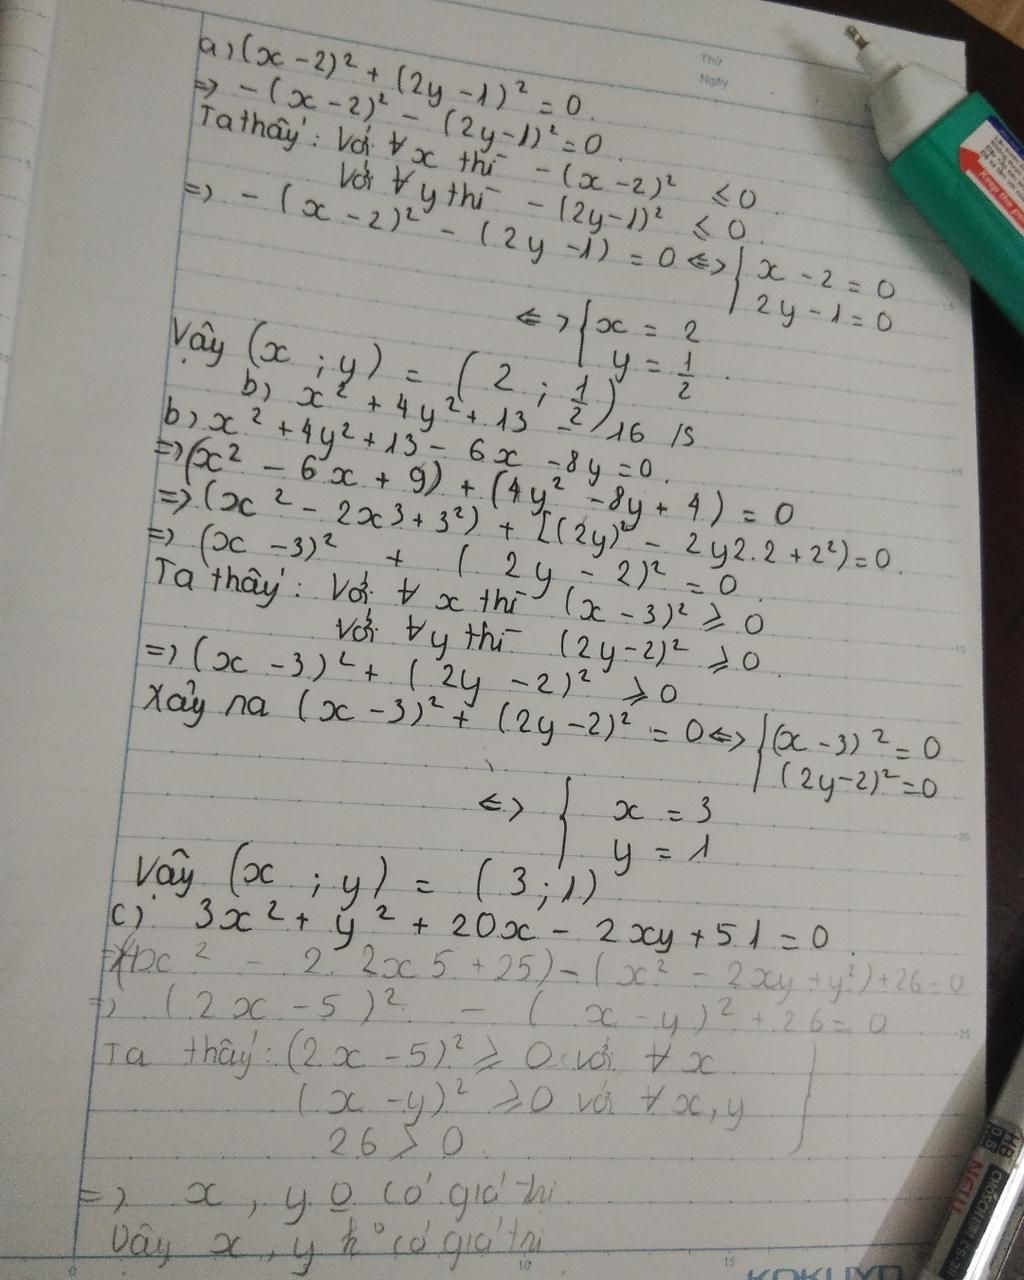 Thứ
Ngày
a) (x - 2)² + (2y - 1)² = 0.
=> - (x - 2)² - (2y - 1)² = 0.
Ta thấy: Với ∀ x thì - (x - 2)² ≤ 0.
Với ∀ y thì - (2y - 1)² ≤ 0.
=> - (x - 2)² - (2y - 1) = 0 <=> { x - 2 = 0
2y - 1 = 0
<=> { x = 2
y = 1/2.
Vậy (x ; y) = (2 ; 1/2)
b) x² + 4y² + 13 - 16 15
b) x² + 4y² + 13 - 6x - 8y = 0.
=> (x² - 6x + 9) + (4y² - 8y + 4) = 0
=> (x² - 2x3 + 3²) + [(2y)² - 2y2.2 + 2²) = 0.
=> (x - 3)² + (2y - 2)² = 0.
Ta thấy: Với ∀ x thì (x - 3)² ≥ 0
Với ∀ y thì (2y - 2)² ≥ 0.
=> (x - 3)² + (2y - 2)² ≥ 0
Xảy ra (x - 3)² + (2y - 2)² = 0 <=> { (x - 3)² = 0
(2y - 2)² = 0
<=> { x = 3
y = 1
Vậy (x ; y) = (3 ; 1)
c) 3x² + y² + 20x - 2xy + 51 = 0.
=> (4x² - 2. 2x 5 + 25) - (x² - 2xy + y²) + 26 = 0
=> (2x - 5)² - (x - y)² + 26 = 0
Ta thấy: (2x - 5)² ≥ 0 với ∀ x
(x - y)² ≥ 0 với ∀ x, y
26 > 0.
=> x, y 0 có giá trị
Vậy x, y k° có giá trị
Keep the p
HB
0.5
NEW
KOKUYO
5
10
15
20
25
0
10
15